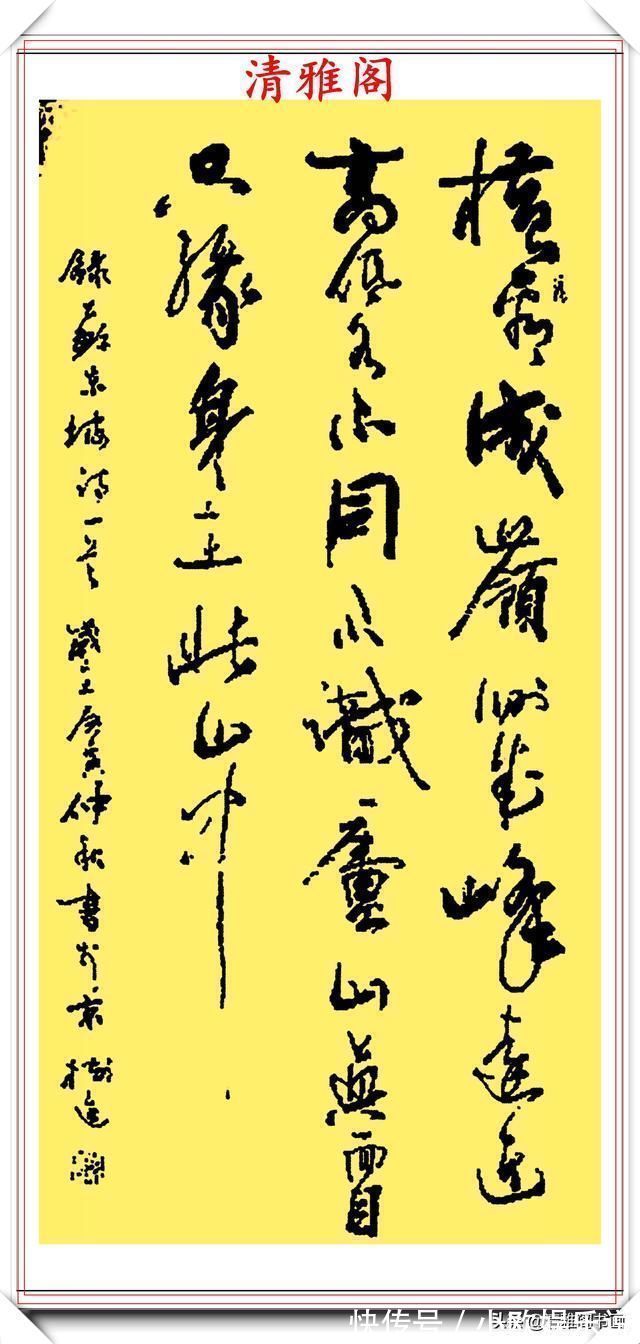 清雅阁
横看成嶺側成峰遠近
高低各不同不識廬山真面目
只緣身在此山中
錄蘇東坡詩一首 歲在庚寅仲秋書於京
快传号 /
头条